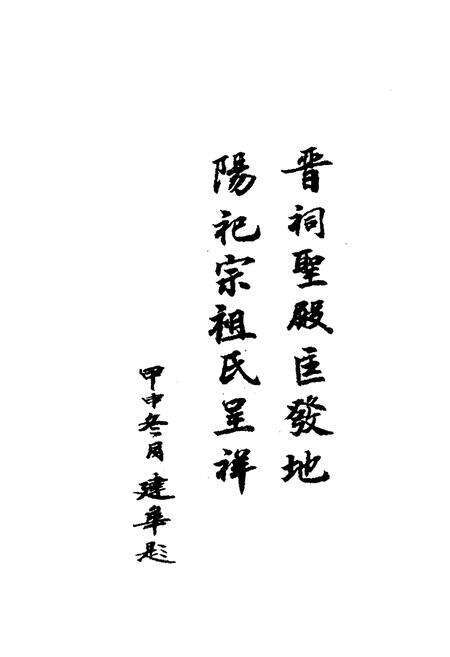 晋祠聖殿匡發地
陽祀宗祖氏呈祥
甲申冬月 建 題